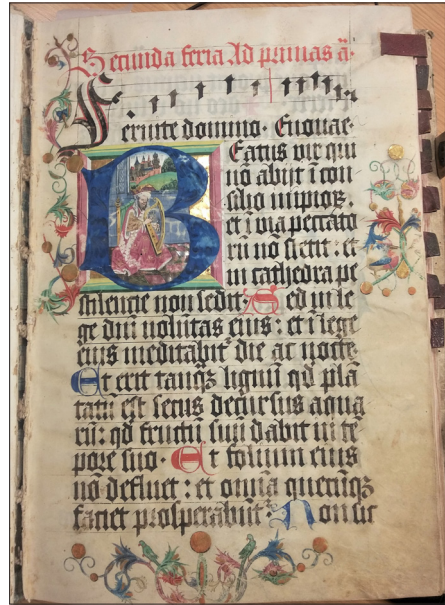 Secunda feria Ad primas añ.
Seruite domino. Euouae.
Beatus vir qui
nō abijt ī con
silio impiorꝫ.
et ī via peccato
rū nō stetit : et
in cathedra pe
stilencie non sedit: Sed in le
ge dnī volūtas eius : et ī lege
eius meditabit̄ die ac nocte.
Et erit tanqꝫ lignū qd plā
tatū est secus decursus aqua
rū: qd fructū suū dabit in tē
pore suo. Et folium eius
nō defluet : et omīa quecūqꝫ
faciet prosperabūt̄: Non sic